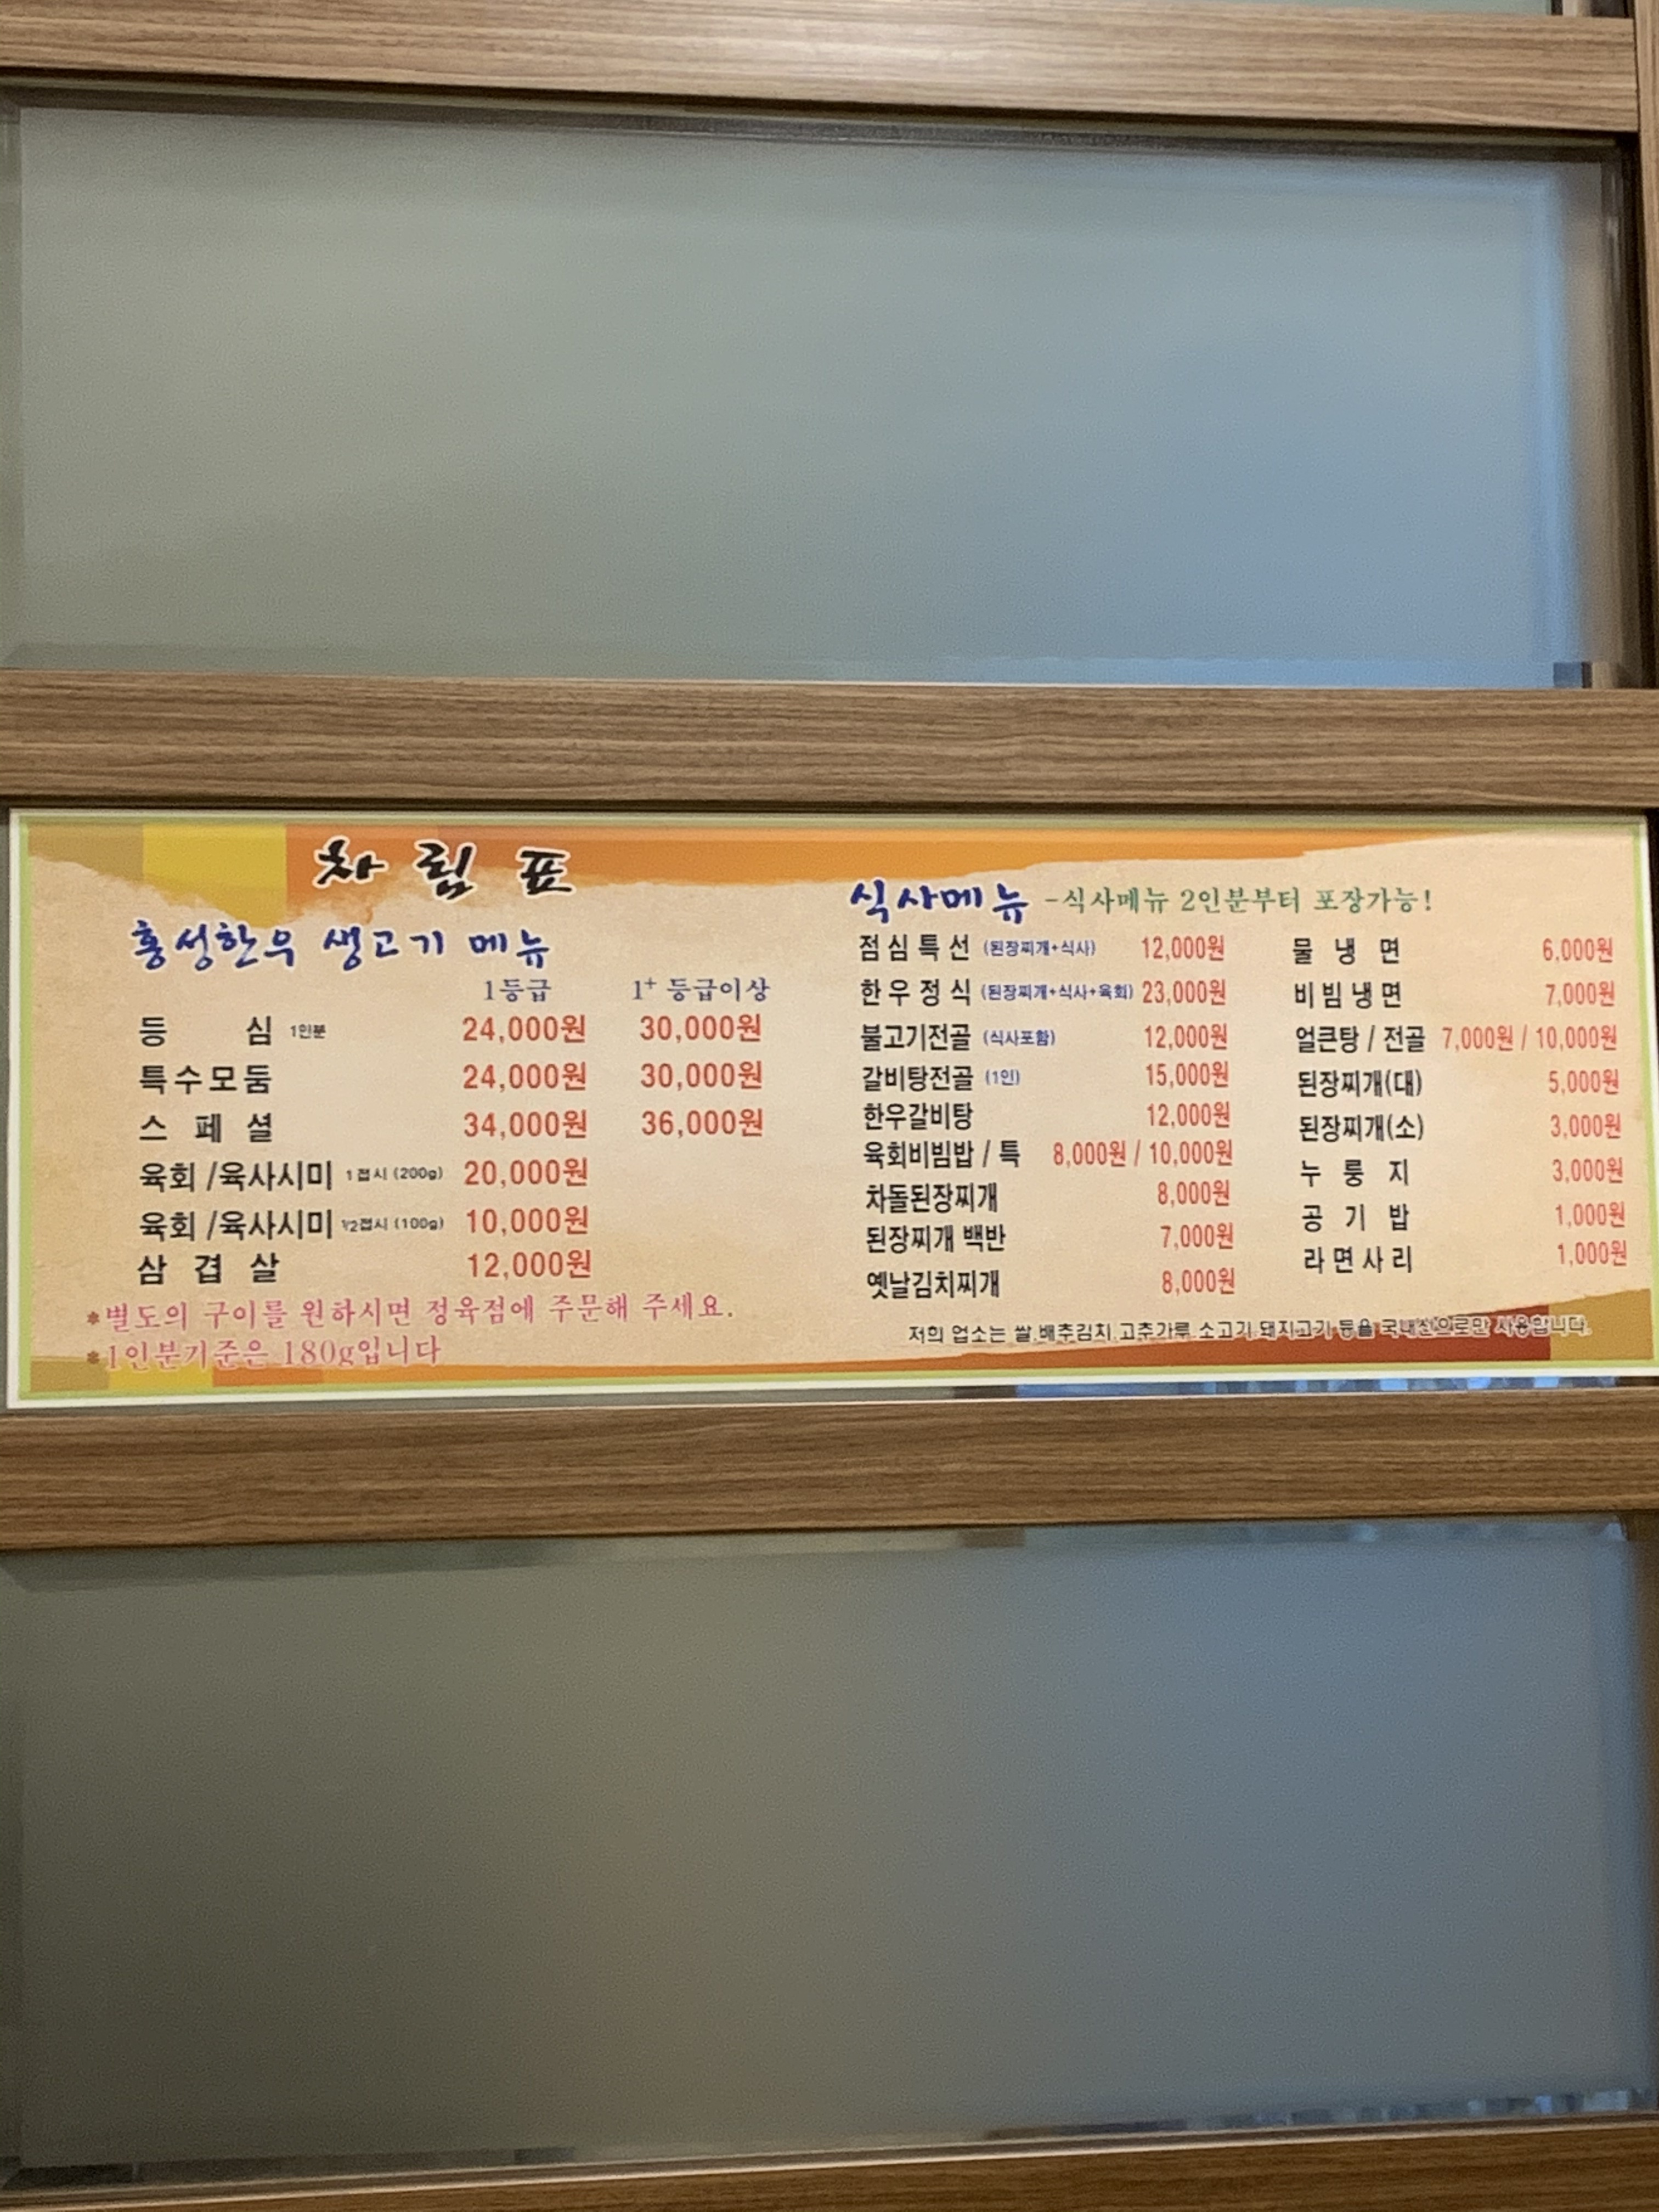 차림표
홍성한우 생고기 메뉴
1등급 1+ 등급이상
등심 1인분 24,000원 30,000원
특수모둠 24,000원 30,000원
스페셜 34,000원 36,000원
육회/육사시미 1접시 (200g) 20,000원
육회/육사시미 1/2접시 (100g) 10,000원
삼겹살 12,000원
*별도의 구이를 원하시면 정육점에 주문해 주세요.
*1인분기준은 180g입니다
식사메뉴 -식사메뉴 2인분부터 포장가능!
점심특선 (된장찌개+식사) 12,000원
한우정식 (된장찌개+식사+육회) 23,000원
불고기전골 (식사포함) 12,000원
갈비탕전골 (1인) 15,000원
한우갈비탕 12,000원
육회비빔밥 / 특 8,000원 / 10,000원
차돌된장찌개 8,000원
된장찌개 백반 7,000원
옛날김치찌개 8,000원
물냉면 6,000원
비빔냉면 7,000원
얼큰탕 / 전골 7,000원 / 10,000원
된장찌개(대) 5,000원
된장찌개(소) 3,000원
누룽지 3,000원
공기밥 1,000원
라면사리 1,000원
저희 업소는 쌀,배추김치,고추가루,소고기,돼지고기 등을 국내산으로만 사용합니다.